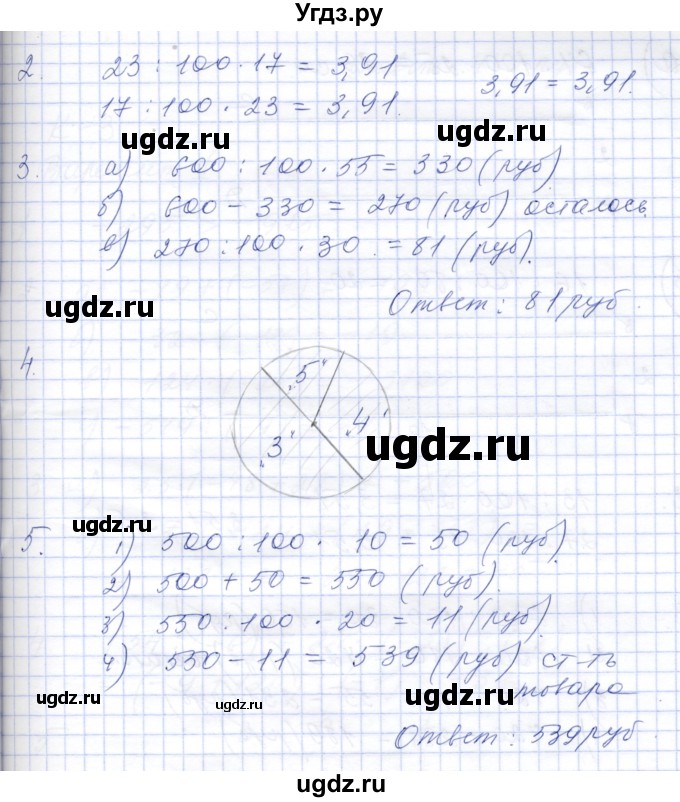 Угдз.ру
2. 23 : 100 · 17 = 3,91
3,91 = 3,91.
17 : 100 · 23 = 3,91.
ugdz.ru ugdz.ru
3. а) 600 : 100 · 55 = 330 (руб)
б) 600 - 330 = 270 (руб) осталось.
в) 270 : 100 · 30 = 81 (руб).
ugdz.ru
Ответ: 81 руб.
4.
„5"
„4"
„3"
ugdz.ru
ugdz.ru
5. 1) 500 : 100 · 10 = 50 (руб).
2) 500 + 50 = 550 (руб).
ugdz.ru
3) 550 : 100 · 20 = 11 (руб).
4) 550 - 11 = 539 (руб) ст-ть
товара
ugdz.ru ugdz.ru ugdz.ru
Ответ: 539 руб
ugdz.ru